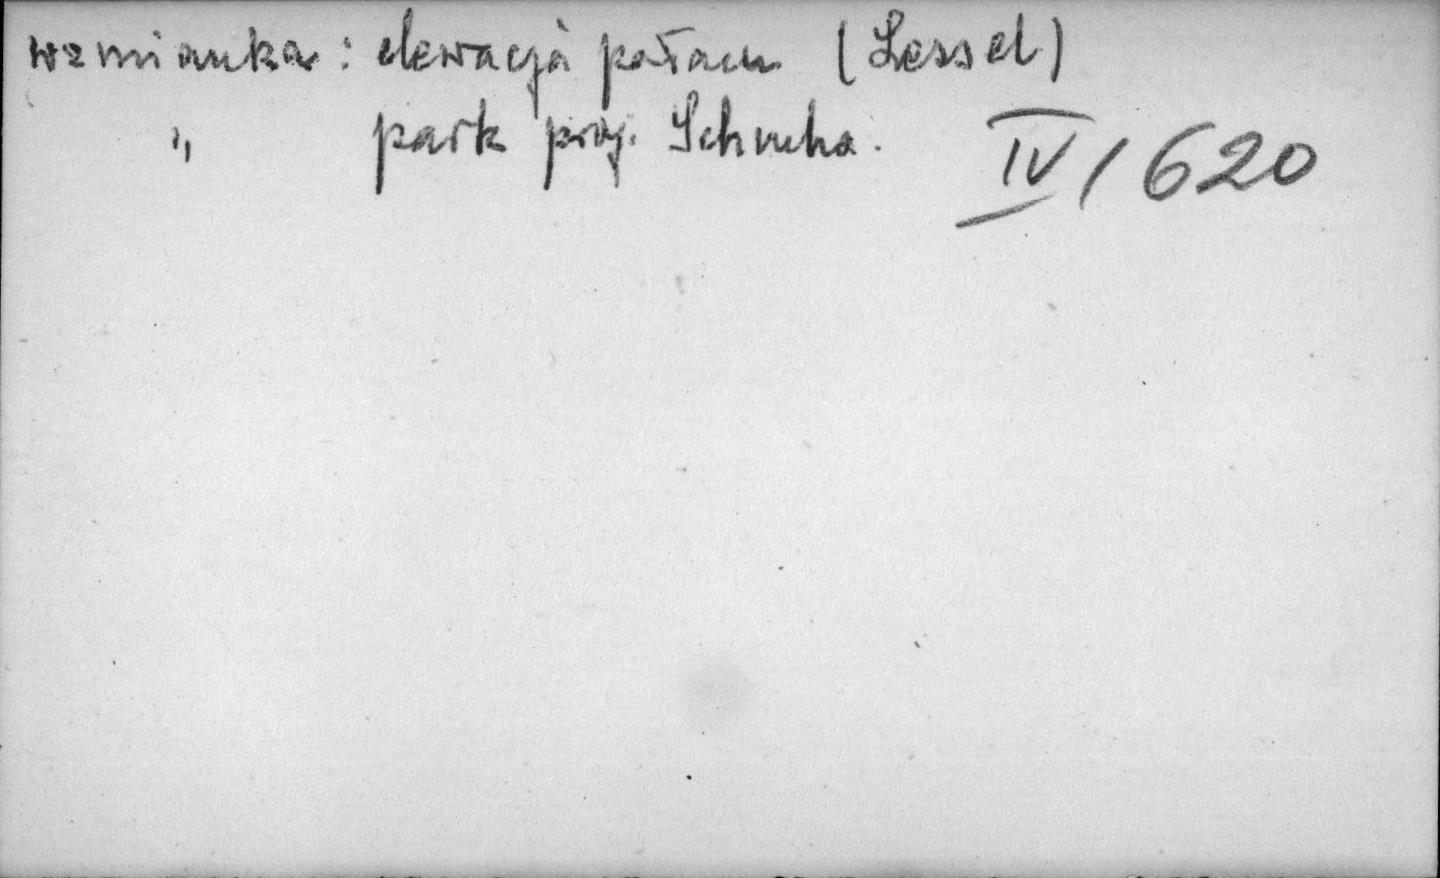 wzmianka: elewacja pałacu (Lessel)
" park proj. Schucha.
IV/620